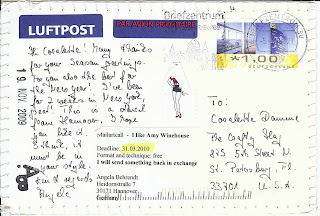 LUFTPOST
PAR AVION PRIORITAIRE
Briefzentrum
*1,00
19. NOV. 2009
Hi Coralette! Many thanks
for your Season greetings.
For you also the best for
the New Year! I've been
for 2 weeks in New York
from Hannover. I hope
you like it.
I think, it
must be in
your style.
Kind regards
Angela
To:
Coralette Damme
The Crafty Hag
875 5th Street N
St. Petersburg, Fl
33701 U.S.A.
Mailartcall - I like Amy Winehouse
Deadline: 31.03.2010
Format and technique: free
I will send something back in exchange
Angela Behrendt
Heidornstraße 7
30171 Hannover
Germany